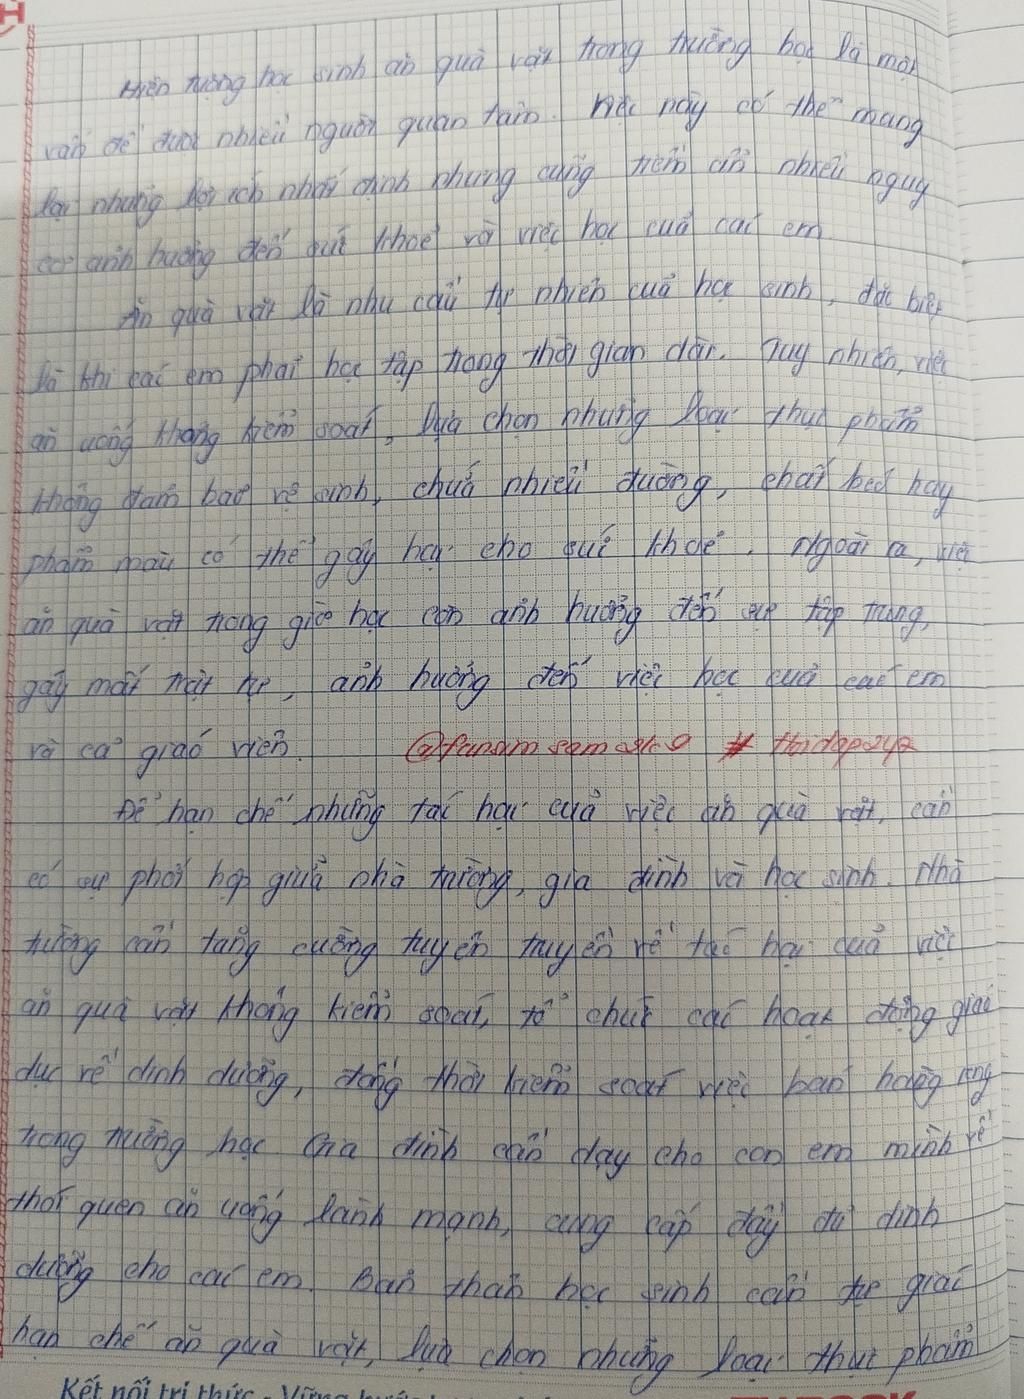 Hiện tượng học sinh ăn quà vặt trong trường học là một
vấn đề được nhiều người quan tâm. Việc này có thể mang
lại những lợi ích nhất định nhưng cũng tiềm ẩn nhiều nguy
cơ ảnh hưởng đến sức khoẻ và việc học của các em
Ăn quà vặt là nhu cầu tự nhiên của học sinh, đặc biệt
là khi các em phải học tập trong thời gian dài. Tuy nhiên, việc
ăn uống không kiểm soát, lựa chọn những loại thực phẩm
không đảm bảo vệ sinh, chứa nhiều đường, chất béo hay
phẩm màu có thể gây hại cho sức khoẻ. Ngoài ra, việc
ăn quà vặt trong giờ học còn ảnh hưởng đến sự tập trung,
gây mất trật tự, ảnh hưởng đến việc học của các em
và cả giáo viên. #Hoidap247
Để hạn chế những tác hại của việc ăn quà vặt, cần
có sự phối hợp giữa nhà trường, gia đình và học sinh. Nhà
trường cần tăng cường tuyên truyền về tác hại của việc
ăn quà vặt không kiểm soát, tổ chức các hoạt động giáo
dục về dinh dưỡng, đồng thời kiểm soát việc bán hàng rong
trong trường học Gia đình cần dạy cho con em mình về
thói quen ăn uống lành mạnh, cung cấp đầy đủ dinh
dưỡng cho các em. Bản thân học sinh cần tự giác
hạn chế ăn quà vặt, lựa chọn những loại thực phẩm
Kết nối tri thức - Vững